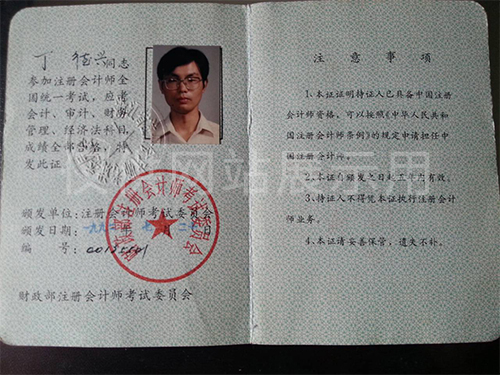 丁 德兴同志
参加注册会计师全
国统一考试，应考
会计、审计、财务
管理、经济法科目，
成绩全部合格，特
发此证。
颁发单位：注册会计师考试委员会
颁发日期：
编 号：
财政部注册会计师考试委员会
注意事项
1、本证证明持证人已具备中国注册
会计师资格，可以按照《中华人民共和
国注册会计师条例》的规定申请担任中
国注册会计师。
2、本证自颁发之日起五年内有效。
3、持证人不得凭本证执行注册会计
师业务。
4、本证请妥善保管，遗失不补。
仅供网站展示用